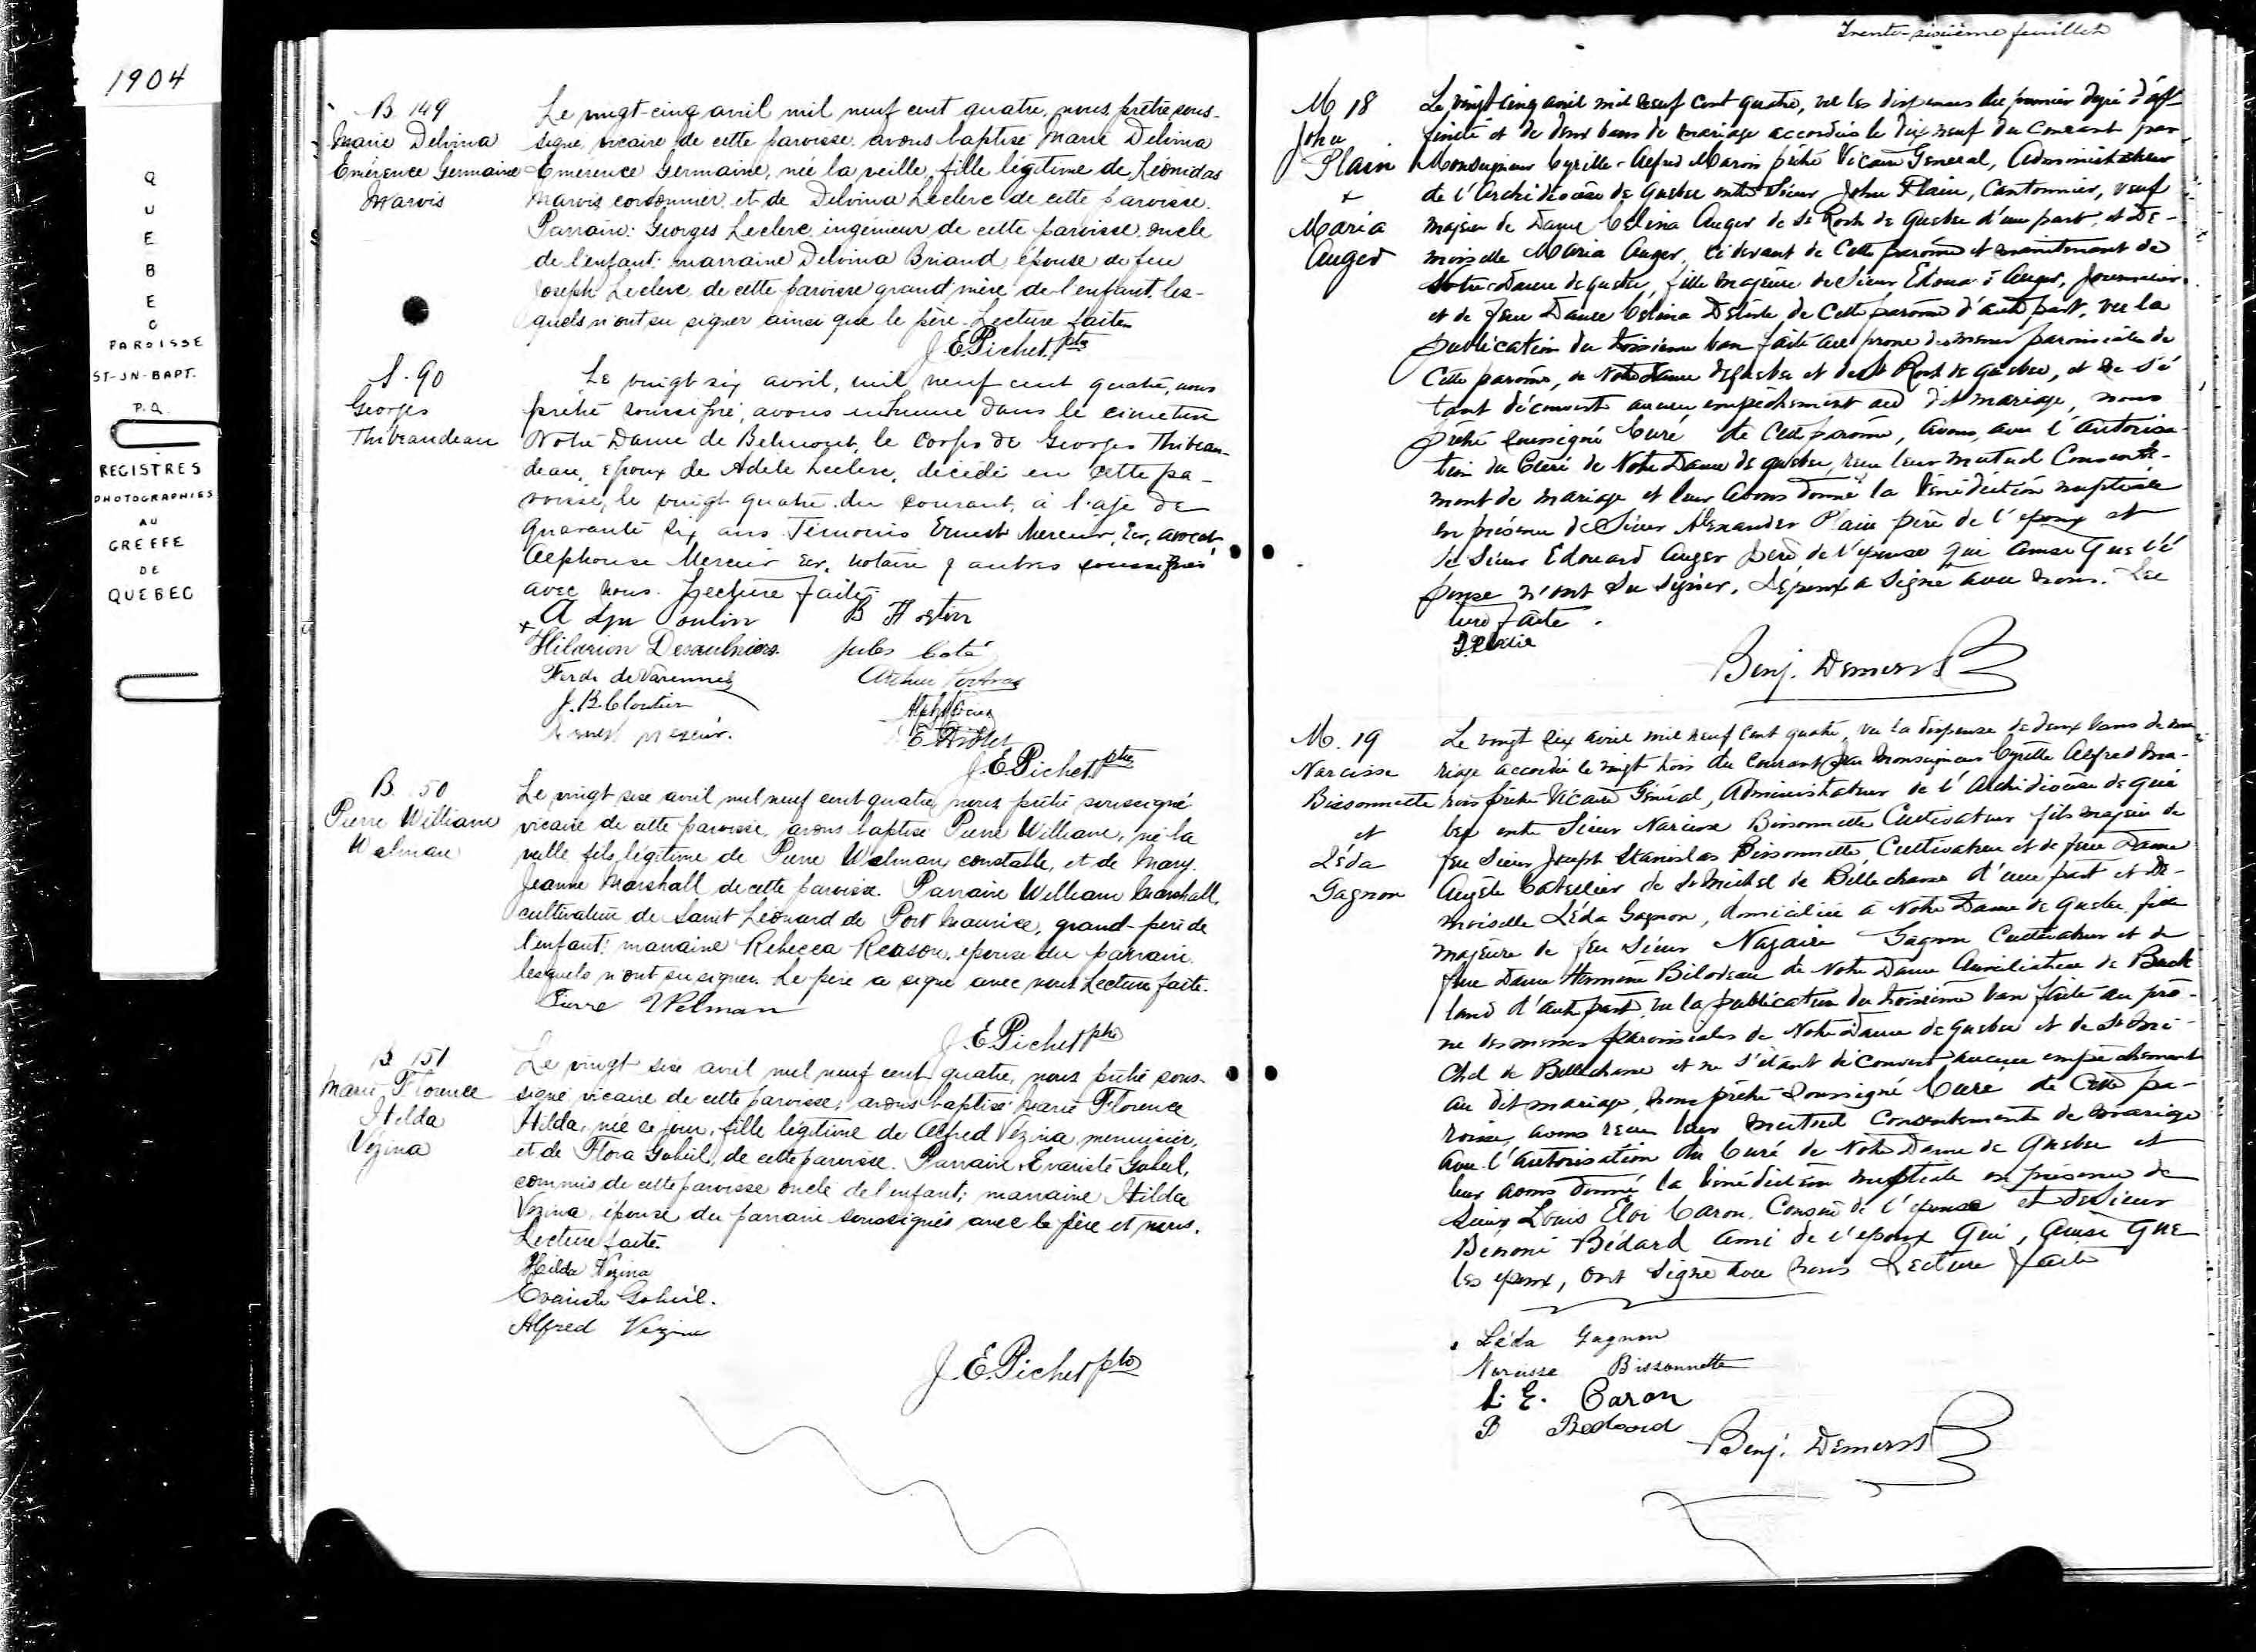 1904
QUEBEC
PAROISSE
ST-JN-BAPT.
P.Q.
REGISTRES
PHOTOGRAPHIES
AU
GREFFE
DE
QUEBEC
B. 149
Marie Delvina
Emérence Germaine
Marois
Le vingt-cinq avril mil neuf cent quatre, nous, prêtre sous-
signé, vicaire de cette paroisse, avons baptisé Marie Delvina
Emérence Germaine, née la veille, fille légitime de Léonidas
Marois, cordonnier, et de Delvina Leclerc de cette paroisse.
Parrain: Georges Leclerc, ingénieur de cette paroisse, oncle
de l'enfant: marraine Delvina Briand épouse de feu
Joseph Leclerc de cette paroisse grand'mère de l'enfant, les-
quels n'ont su signer ainsi que le père. Lecture faite.
J. E. Pichet, ptre
S. 90
Georges
Thibeaudeau
Le vingt six avril, mil neuf cent quatre, nous
prêtre soussigné, avons inhumé dans le cimetière
Notre Dame de Belmont, le corps de Georges Thibeau-
deau, époux de Adele Leclerc, décédé en cette pa-
roisse, le vingt quatre du courant, à l'age de
quarante six ans. Témoins Ernest Mercier, Ecr, avocat,
Alphonse Mercier Ecr, notaire & autres soussignés
avec nous. Lecture faite.
Hilarion Desaulniers
Jules Coté
Ferd. de Varennes
J. B. Cloutier
Ernest Mercier.
J. E. Pichet ptre
B. 50
Pierre William
Welman
Le vingt six avril mil neuf cent quatre, nous prêtre soussigné
vicaire de cette paroisse, avons baptisé Pierre William, né la
veille fils légitime de Pierre Welman, constable, et de Mary
Jeanne Marshall de cette paroisse. Parrain William Marshall,
cultivateur de Saint Léonard de Port Maurice, grand-père de
l'enfant: marraine Rebecca Reason, épouse du parrain.
lesquels n'ont su signer. Le père a signé avec nous. Lecture faite.
Pierre Welman
J. E. Pichet ptre
B 151
Marie Florence
Hilda
Vezina
Le vingt six avril mil neuf cent quatre, nous prêtre sous-
signé vicaire de cette paroisse, avons baptisé Marie Florence
Hilda, née ce jour, fille légitime de Alfred Vezina, menuisier,
et de Flora Goheil, de cette paroisse. Parrain Evariste Goheil,
commis de cette paroisse oncle de l'enfant; marraine Hilda
Vezina, épouse du parrain soussignés avec le père et nous.
Lecture faite.
Hilda Vezina
Evariste Goheil.
Alfred Vezina
J. E. Pichet ptre
Trente-sixième feuillet
M 18
John
Plain
+
Maria
Auger
Le vingt cinq avril mil neuf cent quatre, vu les dispenses du premier degré d'af-
finité et de deux bans de mariage accordées le dix neuf du courant par
Monseigneur Cyrille-Alfred Marois prêtre Vicaire General, Administrateur
de l'Archidiocèse de Quebec entre Sieur John Plain, Cantonnier, veuf
majeur de Dame Célina Auger de St Roch de Quebec d'une part, et De-
moiselle Maria Auger, ci devant de cette paroisse et maintenant de
Notre Dame de Quebec, fille majeure de Sieur Edouard Auger, Journalier
et de feue Dame Célina Delisle de cette paroisse d'autre part, vu la
publication du troisieme ban faite au prone des messes paroissiales de
cette paroisse, de Notre Dame de Quebec et de St Roch de Quebec, et ne s'é
tant découvert aucun empêchement au dit mariage, nous
prêtre soussigné Curé de cette paroisse, avons, avec l'autorisa-
tion du Curé de Notre Dame de Quebec, reçu leur mutuel Consente-
ment de mariage et leur avons donné la bénédiction nuptiale
en présence de Sieur Alexander Plain père de l'époux et
de Sieur Edouard Auger père de l'épouse qui ainsi que l'é
pouse n'ont su signer. L'époux a signé avec nous. Lec
ture faite.
Benj. Demers
M. 19
Narcisse
Bissonnette
et
Léda
Gagnon
Le vingt six avril mil neuf cent quatre, vu la dispense de deux bans de ma
riage accordée le vingt trois du courant par Monseigneur Cyrille Alfred Ma-
rois prêtre Vicaire Général, Administrateur de l'Archidiocèse de Qué
bec entre Sieur Narcisse Bissonnette Cultivateur fils majeur de
feu Sieur Joseph Stanislas Bissonnette, Cultivateur et de feue Dame
Angèle Catellier de St Michel de Bellechasse d'une part et De-
moiselle Léda Gagnon, domiciliée à Notre Dame de Quebec fille
majeure de feu Sieur Nazaire Gagnon Cultivateur et de
feue Dame Hermine Bilodeau de Notre Dame Auxiliatrice de Buck
land d'autre part, vu la publication du troisième ban faite au prô-
ne des messes paroissiales de Notre Dame de Quebec et de St Mi-
chel de Bellechasse et ne s'étant découvert aucun empêchement
au dit mariage, nous prêtre soussigné Curé de cette pa-
roisse, avons reçu leur mutuel Consentement de mariage
avec l'autorisation du Curé de Notre Dame de Quebec et
leur avons donné la bénédiction nuptiale en présence de
Sieur Louis Eloi Caron, Cousin de l'épouse et de Sieur
Bénoni Bédard ami de l'époux qui, ainsi que
les époux, ont signé avec nous Lecture faite
Léda Gagnon
Narcisse Bissonnette
L. E. Caron
B Bedard
Benj. Demers